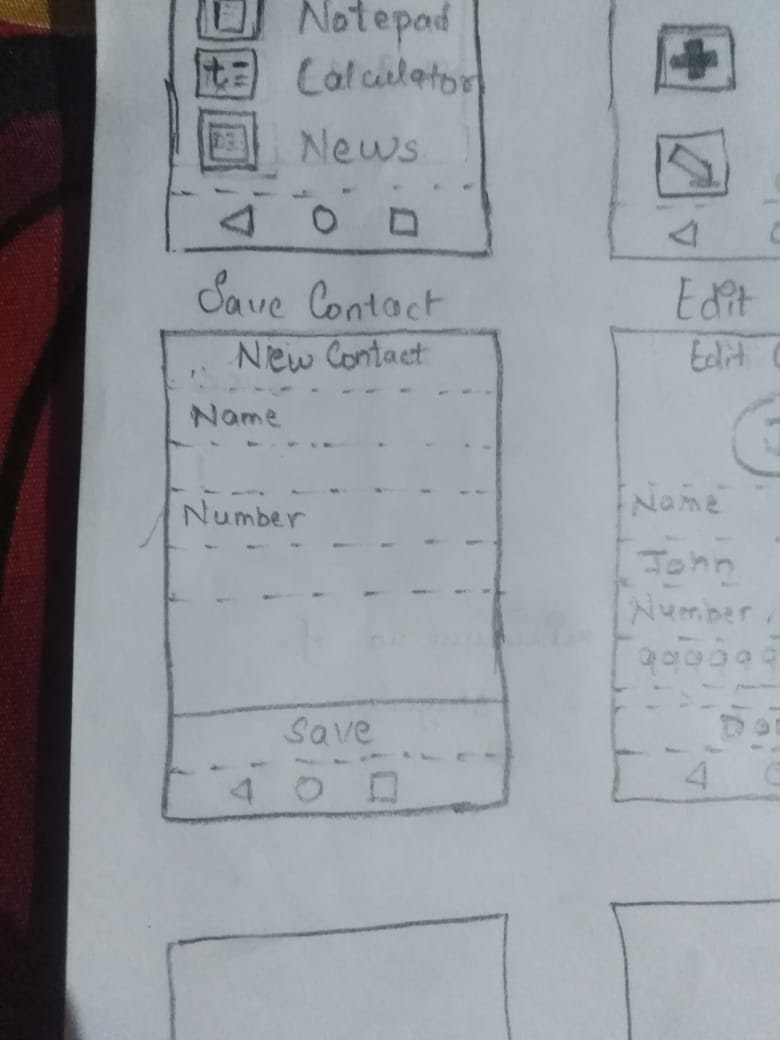 Notepad
Calculator
News
Save Contact
New Contact
Name
Number
Save
Edit
Edit
Name
John
Number
999999